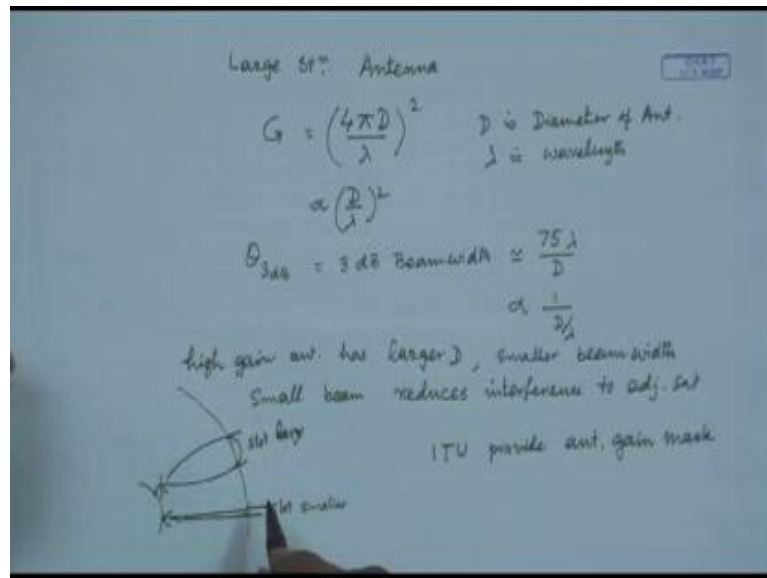 Large stn. Antenna
G = (4πD/λ)²
D is Diameter of Ant.
λ is wavelength
α (D/λ)²
θ3dB = 3 dB Beamwidth ≃ 75λ/D
α 1/D/λ
high gain ant. has larger D, smaller beamwidth
Small beam reduces interference to adj. sat
slot large
ITU provide ant. gain mask
slot smaller